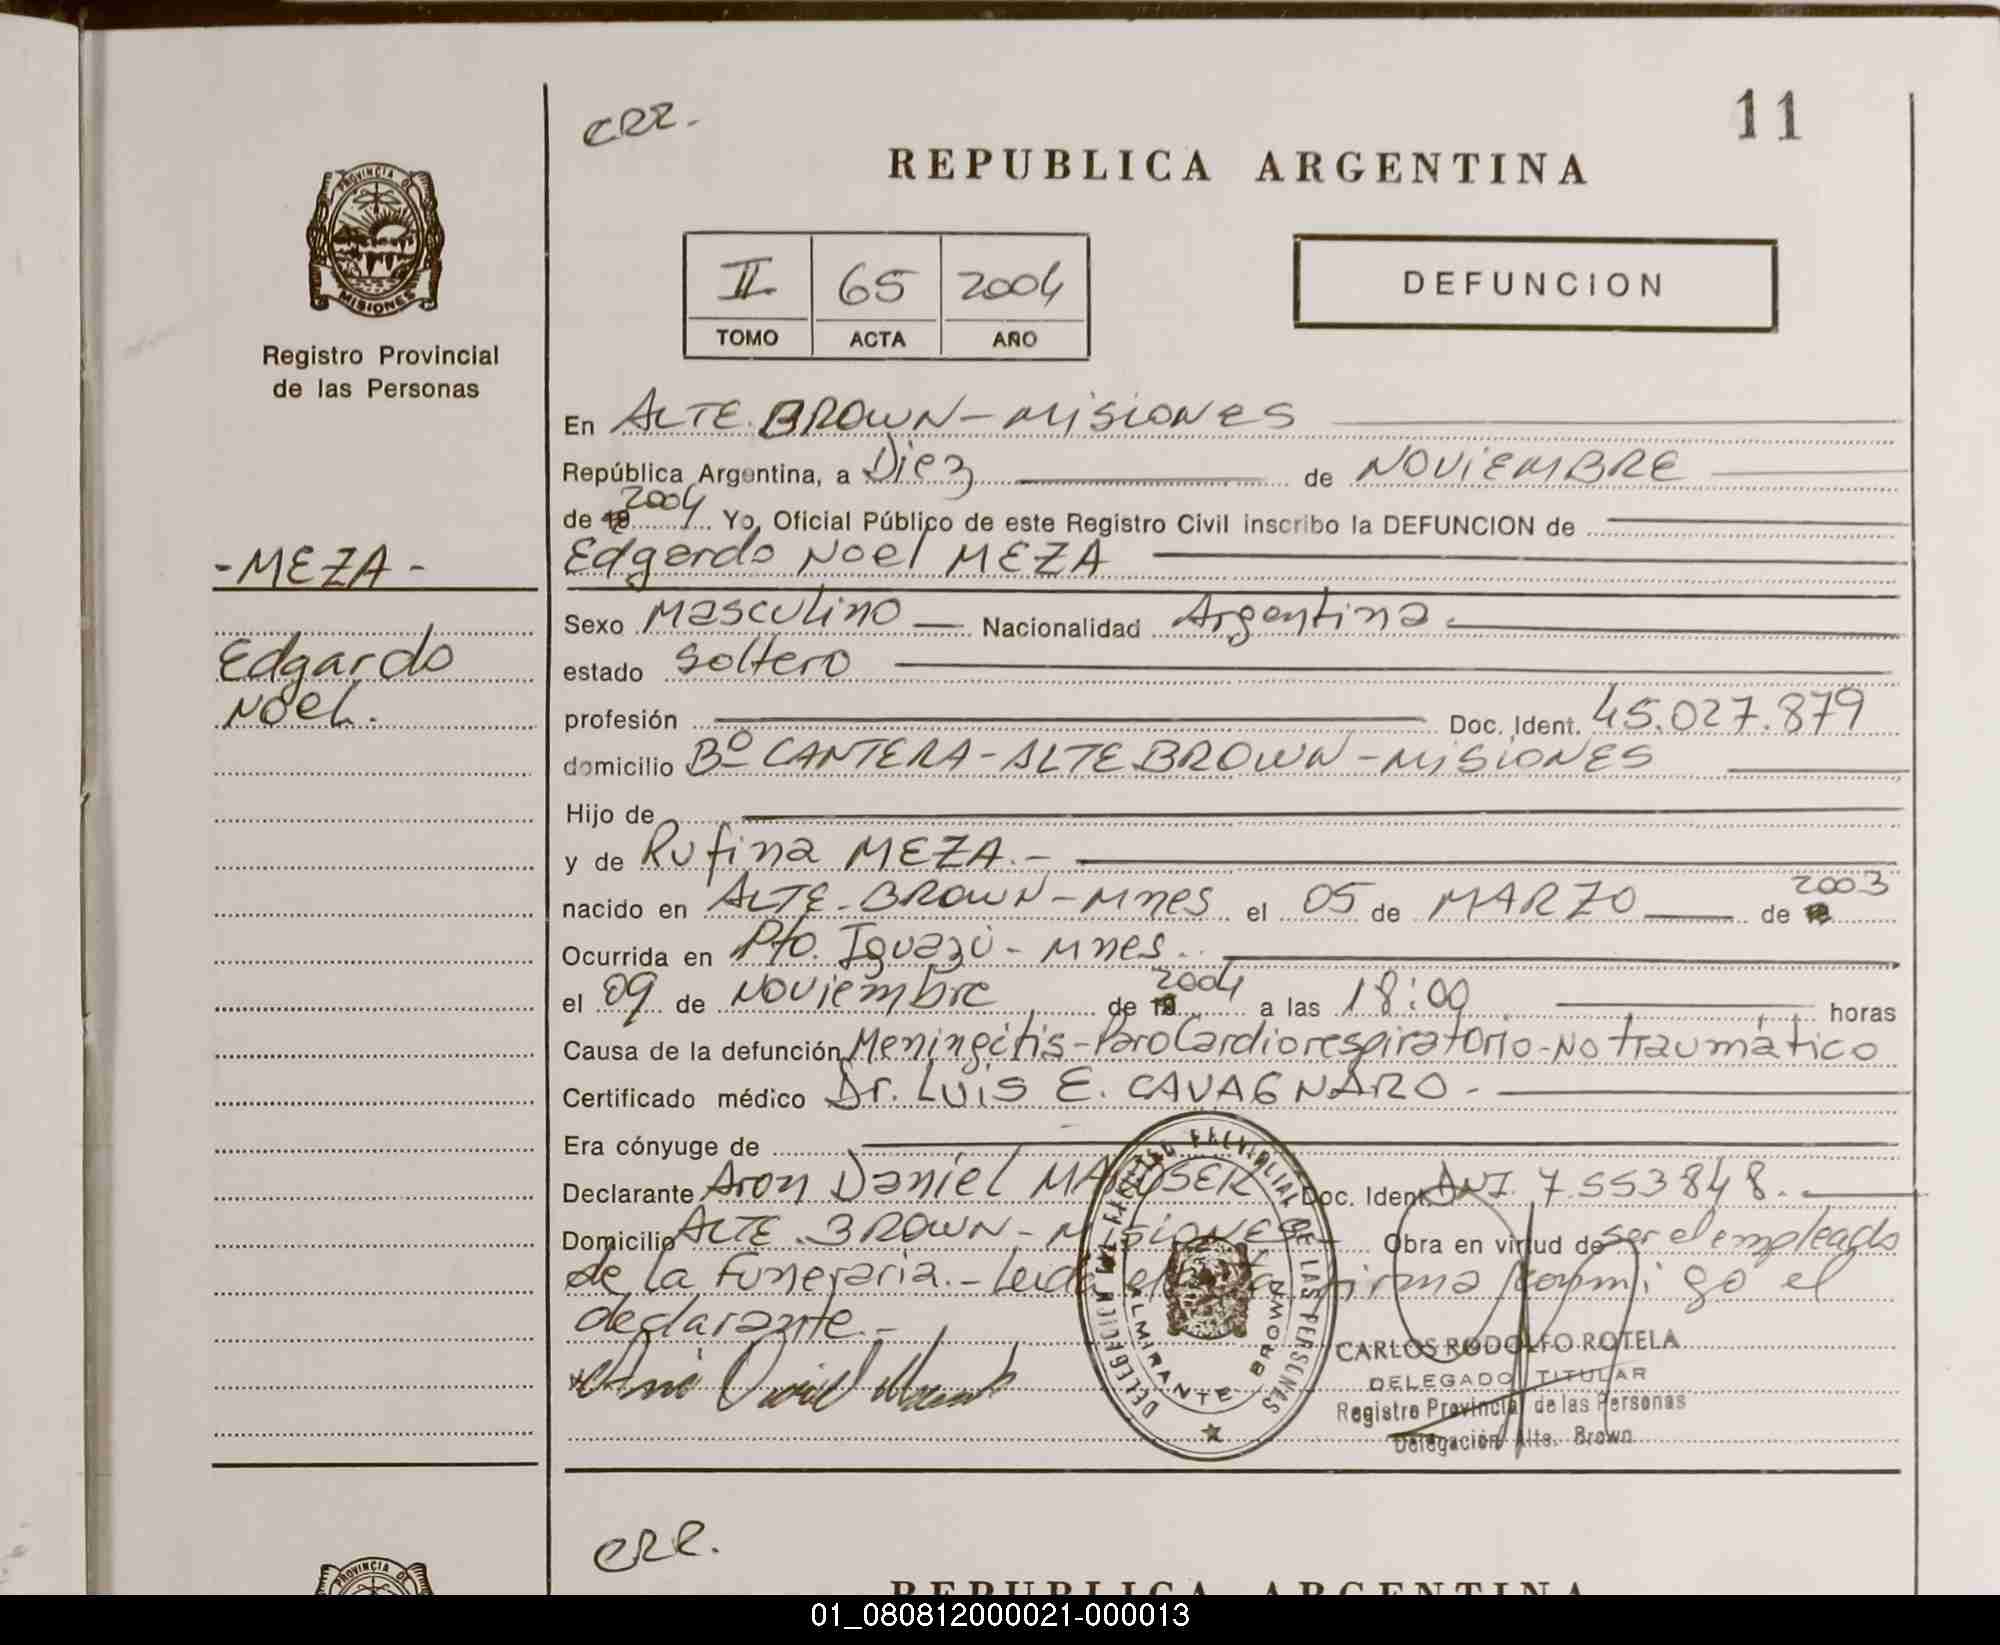 CRR.
11
REPUBLICA ARGENTINA
PROVINCIA DE
MISIONES
Registro Provincial
de las Personas
II 65 2004
TOMO ACTA AÑO
DEFUNCION
En ALTE. BROWN - MISIONES
República Argentina, a Diez de NOVIEMBRE
de 19 2004 Yo, Oficial Público de este Registro Civil inscribo la DEFUNCION de
- MEZA -
Edgardo Noel MEZA
Sexo Masculino Nacionalidad Argentina.
Edgardo
Noel.
estado Soltero
profesión Doc. Ident. 45.027.879
domicilio Bº CANTERA - ALTE BROWN - MISIONES
Hijo de
y de Rufina MEZA.-
nacido en ALTE. BROWN - Mnes el 05 de MARZO de 2003
Ocurrida en Pto. Iguazú - Mnes.
el 09 de Noviembre de 19 2004 a las 18:00 horas
Causa de la defunción Meningitis - Paro Cardiorespiratorio - No traumático
Certificado médico Dr. Luis E. CAVAGNARO.-
Era cónyuge de
Declarante Aron Daniel Doc. Ident. DNI. 7.553848.
Domicilio ALTE. BROWN - MISIONES Obra en virtud de ser el empleado
de la Funeraria.- Leida el acta firma conmigo el
declarante.-
DELEGACION DEL REGISTRO PROVINCIAL DE LAS PERSONAS
ALMIRANTE BROWN
CARLOS RODOLFO ROTELA
DELEGADO TITULAR
Registro Provincial de las Personas
Delegación Alte. Brown
CRR.
PROVINCIA DE
REPUBLICA ARGENTINA
01_080812000021-000013